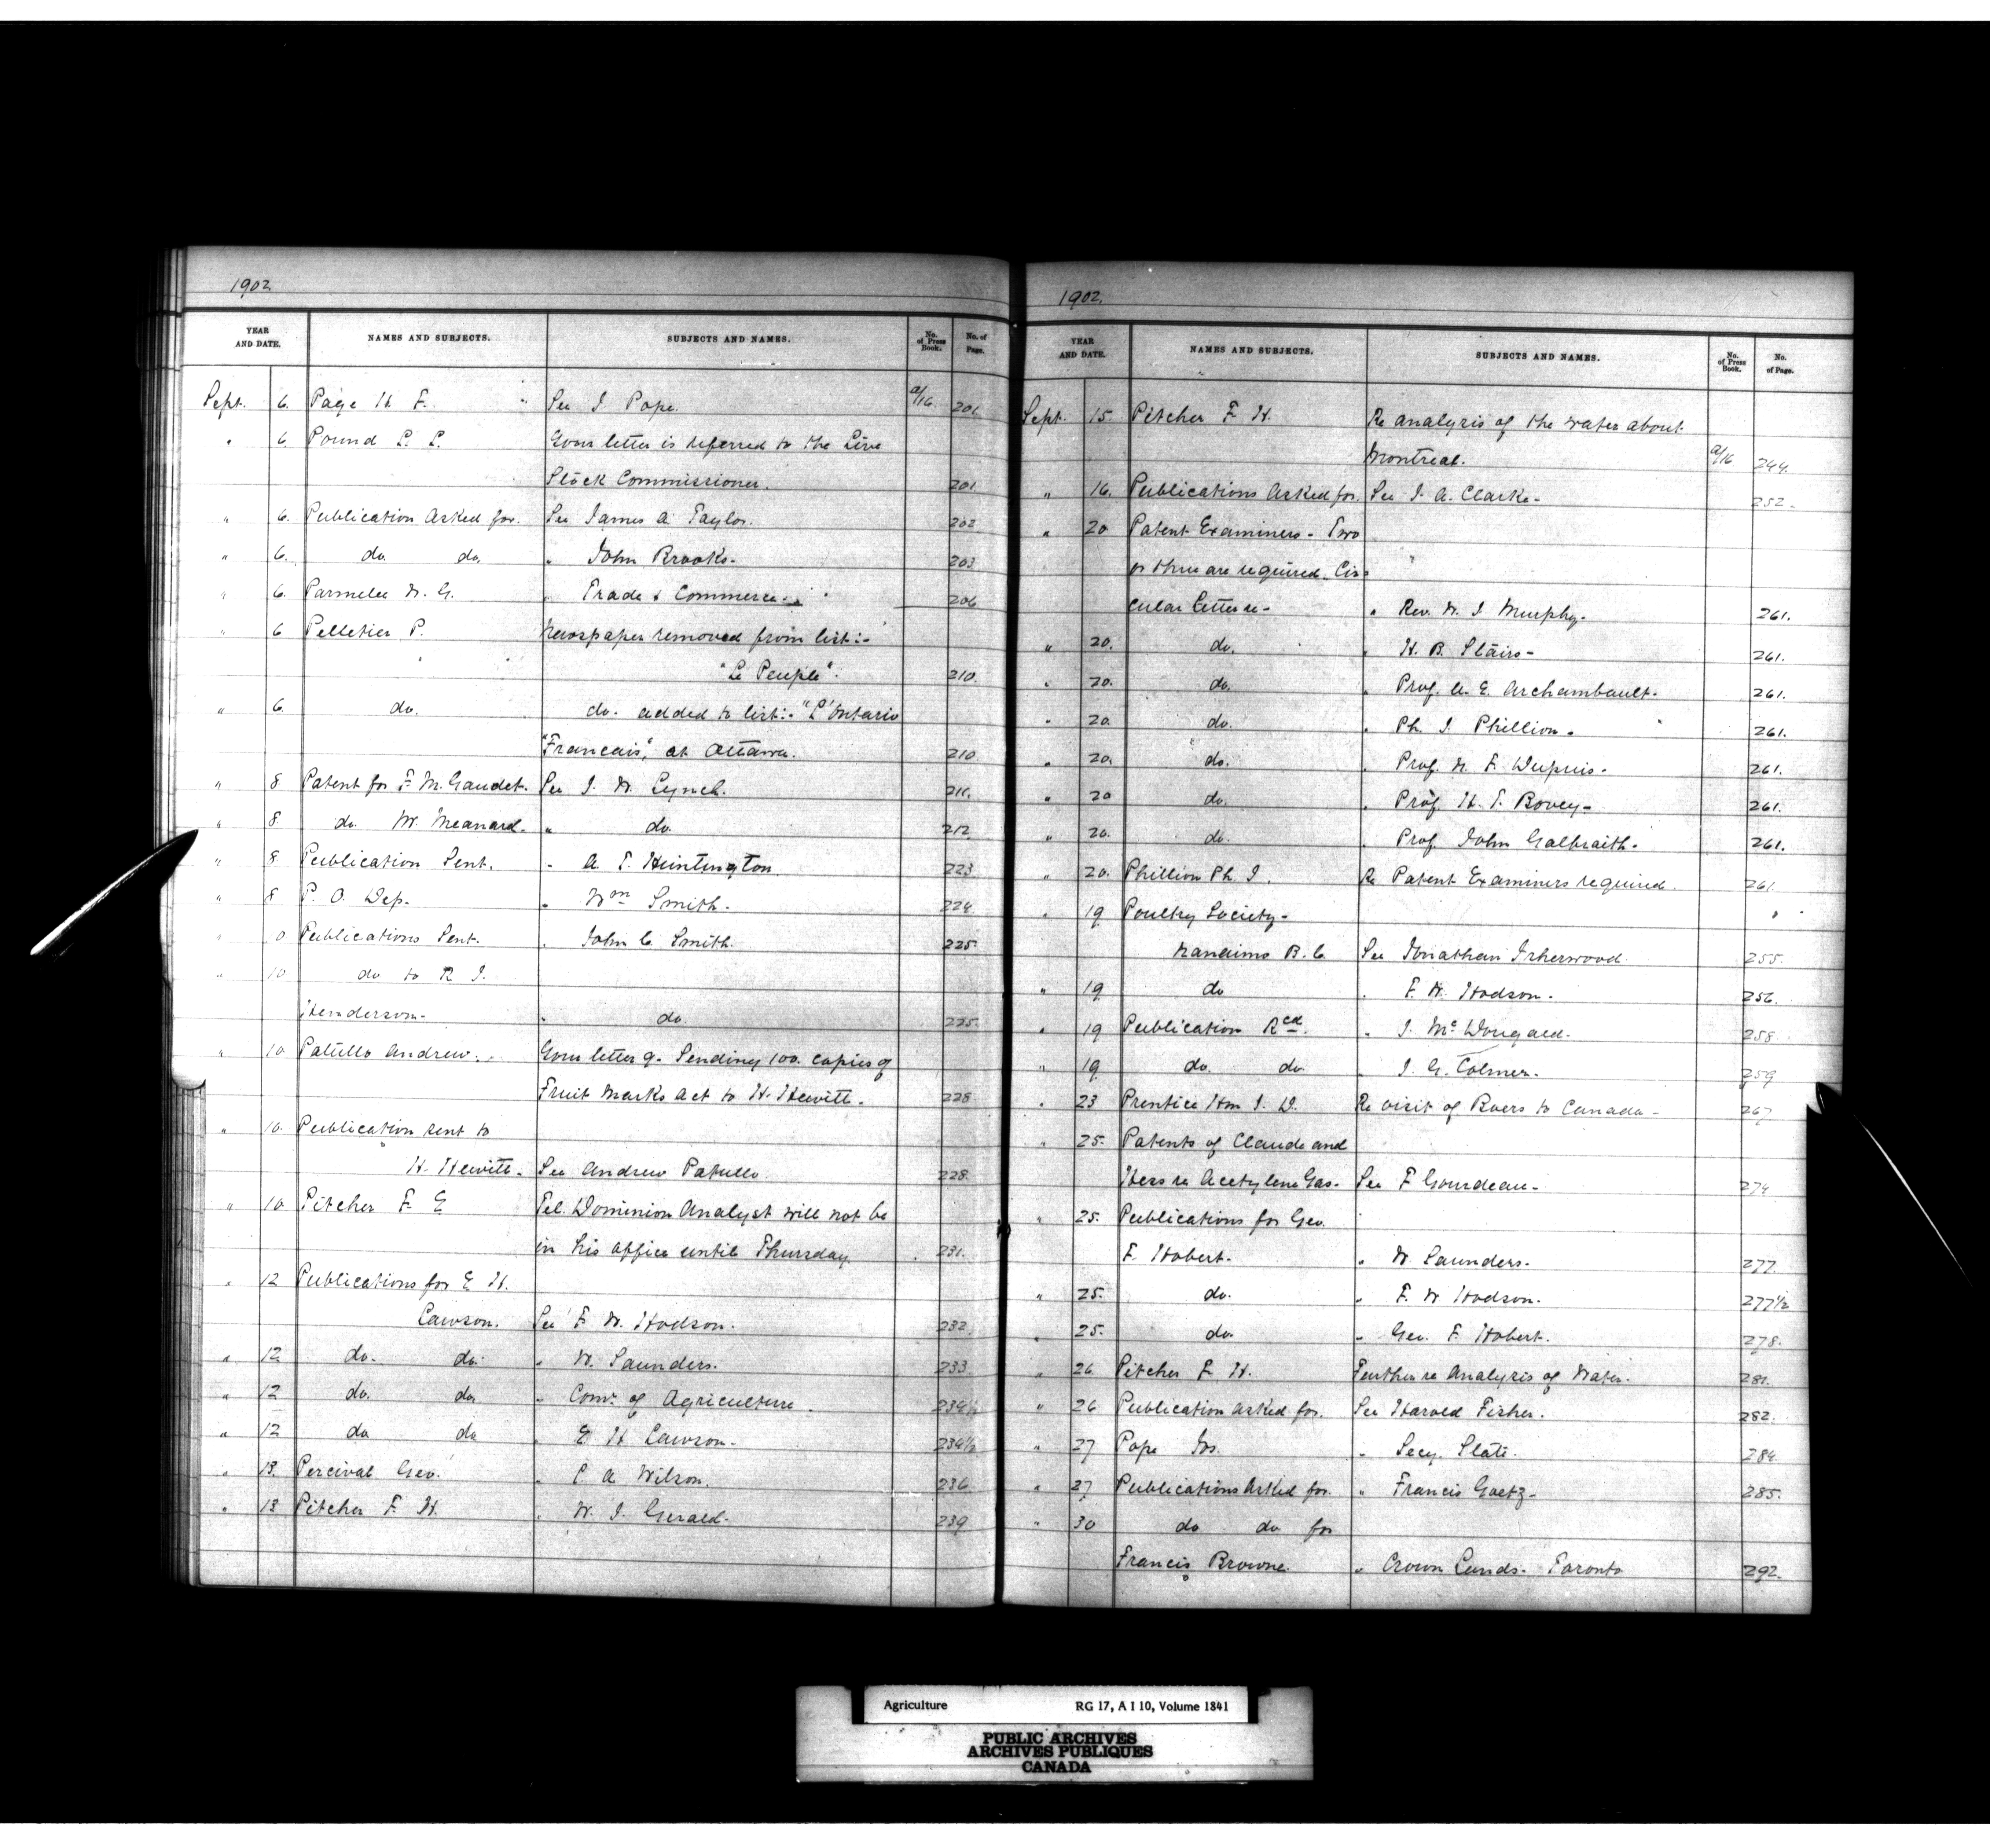 1902.
YEAR AND DATE. NAMES AND SUBJECTS. SUBJECTS AND NAMES. No. of Press Book. No. of Page.
Sept. 6. Page H. F. See J. Pope. a/16 201
" 6. Pound L. L. Your letter is referred to the Live
Stock Commissioner. 201
" 6. Publication asked for. See James A. Taylor. 202
" 6. do do. " John Brooks. 203
" 6. Parmelee W. G. " Trade & Commerce. 206
" 6 Pelletier P. Newspaper removed from list:-
"Le Peuple". 210.
" 6. do. do. added to list:- "L'Ontario
"Francais", at Ottawa. 210
" 8 Patent for F. M. Gaudet. See J. W. Lynch. 211.
" 8. do. W. Meanard. " do. 212
" 8. Publication Sent. " A. T. Huntington. 223
" 8 P. O. Dep. " Wm Smith. 224
" Publications Sent. " John C. Smith. 225.
" 10. do to R J.
Henderson. " do. 225.
" 10. Patullo Andrew. Your letter 9. Sending 100. copies of
Fruit Marks Act to H. Hewitt. 228
" 10. Publication sent to
H. Hewitt. See Andrew Patullo. 228.
" 10 Pitcher F. E Tel. Dominion Analyst will not be
in his office until Thursday. 231.
" 12 Publications for E H.
Lawson. See F. W. Hodson. 232.
" 12. do. do. " W. Saunders. 233
" 12 do. do. " Comr. of Agriculture. 234½
" 12 do do " E H Lawson. 234½
" 13. Percival Geo. " P A Wilson. 236
" 13 Pitcher F. H. " W. J. Gerald. 239
1902.
YEAR AND DATE. NAMES AND SUBJECTS. SUBJECTS AND NAMES. No. of Press Book. No. of Page.
Sept. 15. Pitcher F. H. Re analysis of the water about
Montreal. a/16 244.
" 16. Publications asked for. See J. A. Clarke. 252.
" 20 Patent Examiners - Two
or three are required. Cir-
cular letter re- " Rev. W. J. Murphy. 261.
" 20. do. " H. B. Stairs- 261.
" 20. do. " Prof. U. E. Archambault. 261.
" 20. do. " Ph. J. Phillion. 261.
" 20. do. " Prof. N. F. Dupuis. 261.
" 20 do. " Prof. H. T. Bovey- 261.
" 20. do. " Prof. John Galbraith. 261.
" 20. Phillion Ph. J. Re Patent Examiners required. 261.
" 19 Poultry Society-
Nanaimo B. C. See Jonathan Isherwood. 255.
" 19 do " F. W. Hodson. 256.
" 19 Publication Rcd. " J. McDougald. 258.
" 19 do. do " J. G. Colmer. 259
" 23 Prentice Hon J. D. Re visit of Boers to Canada- 267
" 25. Patents of Claude and
Hess re Acetylene Gas. See F Gourdeau- 274
" 25. Publications for Geo.
F. Hobert. " W. Saunders. 277.
" 25. do. " F. W Hodson. 277½
" 25. do. " Geo. F. Hobert. 278.
" 26 Pitcher F. H. Further re Analysis of Water. 281.
" 26 Publication asked for. See Harold Fisher. 282.
" 27 Pope Jos. " Secy. State. 284.
" 27 Publications Asked for. " Francis Goetz- 285.
" 30 do do for
Francis Browne. " Crown Lands. Toronto 292.
Agriculture RG 17, A I 10, Volume 1841
PUBLIC ARCHIVES
ARCHIVES PUBLIQUES
CANADA